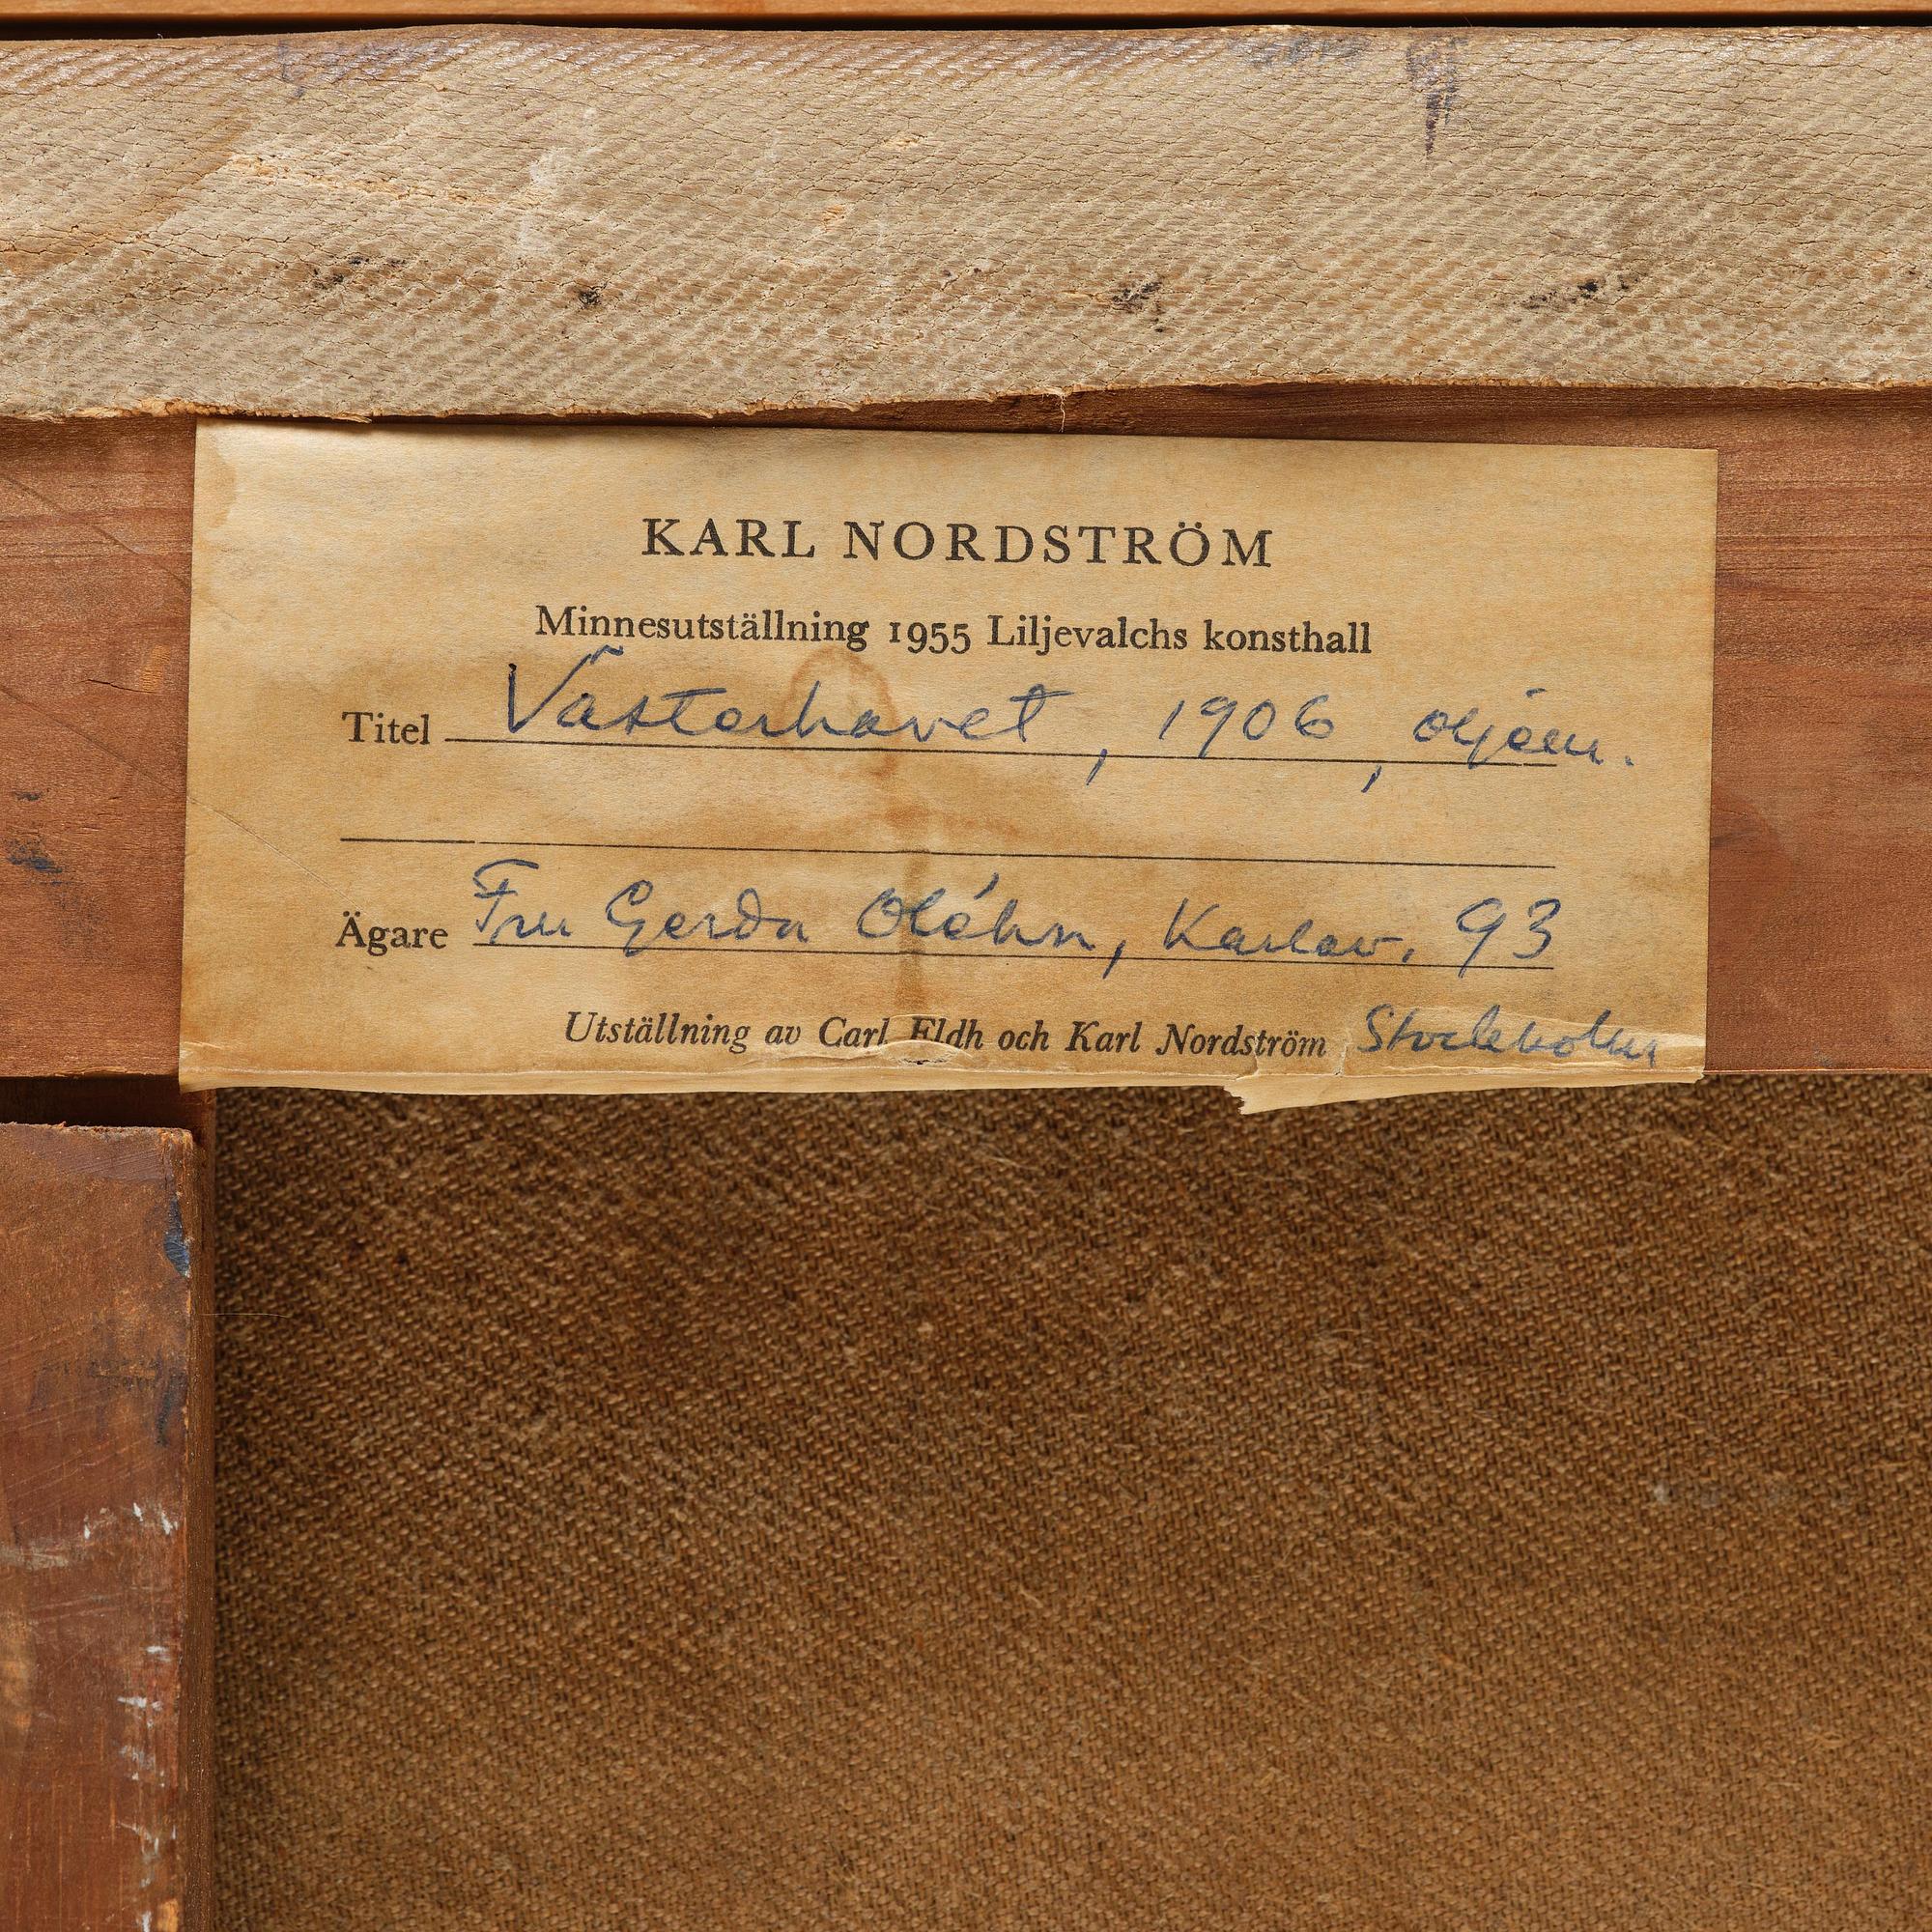 KARL NORDSTRÖM
Minnesutställning 1955 Liljevalchs konsthall
Titel Västerhavet, 1906, oljem.
Ägare Fru Gerda Oléhn, Karlav. 93
Utställning av Carl Eldh och Karl Nordström Stockholm